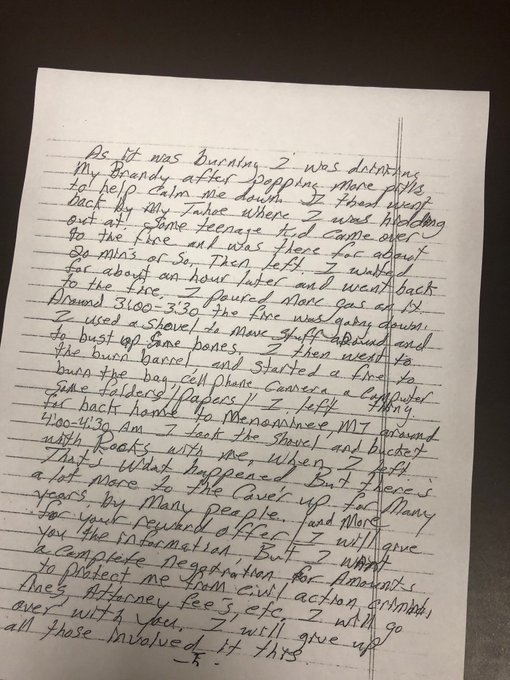 As it was burning I was drinking
My Brandy after popping more pills
to help calm me down. I then went
back by my Tahoe where I was hidding
out at. Some teenage kid came over
to the fire and was there for about
20 mins or so, Then left. I waited
for about an hour later and went back
to the fire. I poured more gas on it.
Around 3:00-3:30 the fire was going down.
I used a shovel to move stuff around and
to bust up some bones, I then went to
the burn barrel, and started a fire to
burn the bag, cell phone Camera, a Computer
Some folders/"Papers/" I left thing
for back home to Menominee, MI around
4:00-4:30 Am I took the shovel and bucket
with Rocks with me, when I left
That's what happened. But there is
a lot more to the Cover up for Many
years, by Many people. and More
for your reward offer I will give
you the information. But I want
a Complete Negotiation for Amounts
to protect me from civil action, criminal
fines, Attorney fee's, etc, I will go
over with you. I will give up
all those involved it this
-5-